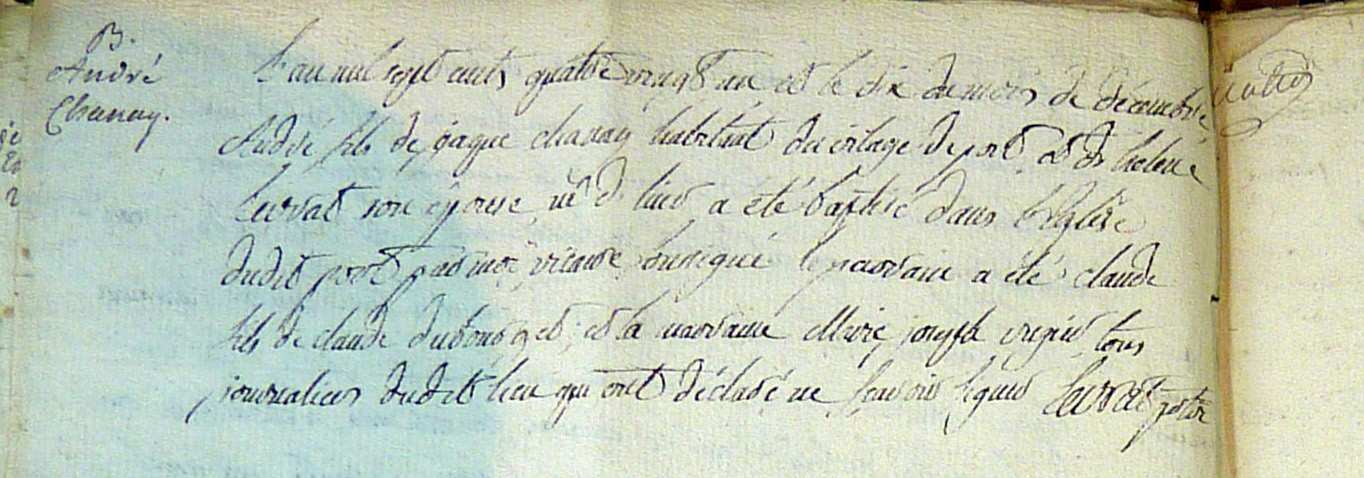 B.
André
Chanay.
L'an mil sept cents quatre vingt un et le dix du mois de décembre
André fils de jaque chanay habitant du vilage de port et de helene
Levrat son épouse né d hier a été baptisé dans l'Eglise
dudit port par moi vicaire soussigné le parrain a été claude
fils de claude dubourget, et la marraine Marie joseph
tous
journaliers dudit lieu qui ont déclaré ne scavoir signer Levrat